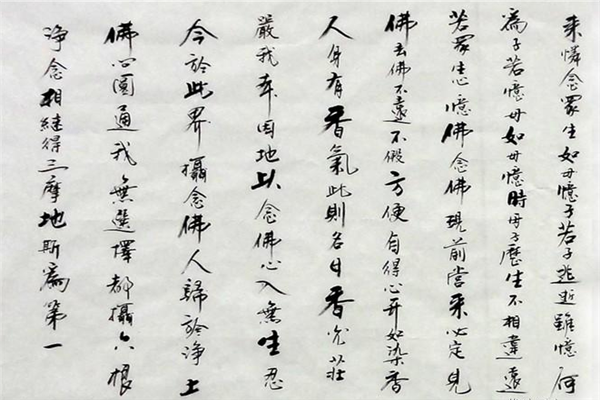 来憐念眾生如母憶子若子逃逝雖憶何
為子若憶母如母憶時母子歷生不相違遠
若眾生心憶佛念佛現前當来必定見
佛去佛不遠不假方便自得心開如染香
人身有香氣此則名曰香光莊
嚴我本因地以念佛心入無生忍
今於此界攝念佛人歸於淨土
佛問圓通我無選擇都攝六根
淨念相繼得三摩地斯為第一